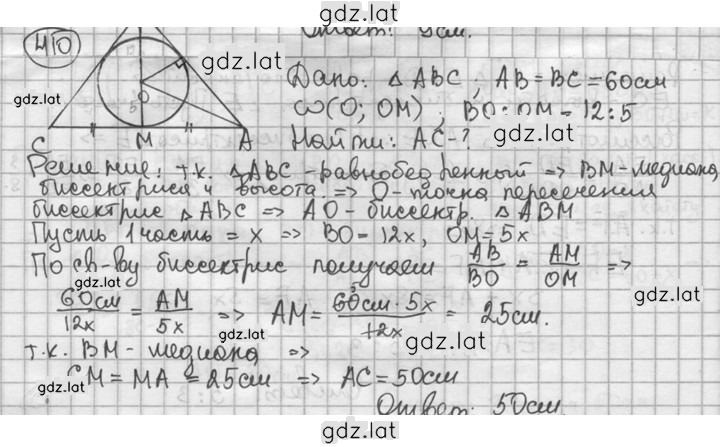 gdz.lat
410
Ответ: 9см.
gdz.lat
Дано: △ABC, AB=BC=60см
gdz.lat
ω(O; OM), BO:OM=12:5
gdz.lat
O
5
C M A
Найти: AC-?
Решение: т.к. △ABC-равнобедренный => BM-медиана,
биссектриса и высота => O-точка пересечения
биссектрис △ABC => AO-биссектр. △ABM
Пусть 1 часть = x => BO=12x, OM=5x
По св-ву биссектрис получаем AB/BO = AM/OM =>
gdz.lat
60см/12x = AM/5x => AM = 60см·5x/12x = 25см.
gdz.lat
gdz.lat
т.к. BM-медиана =>
gdz.lat
CM=MA=25см => AC=50см
gdz.lat
Ответ: 50см.
gdz.lat